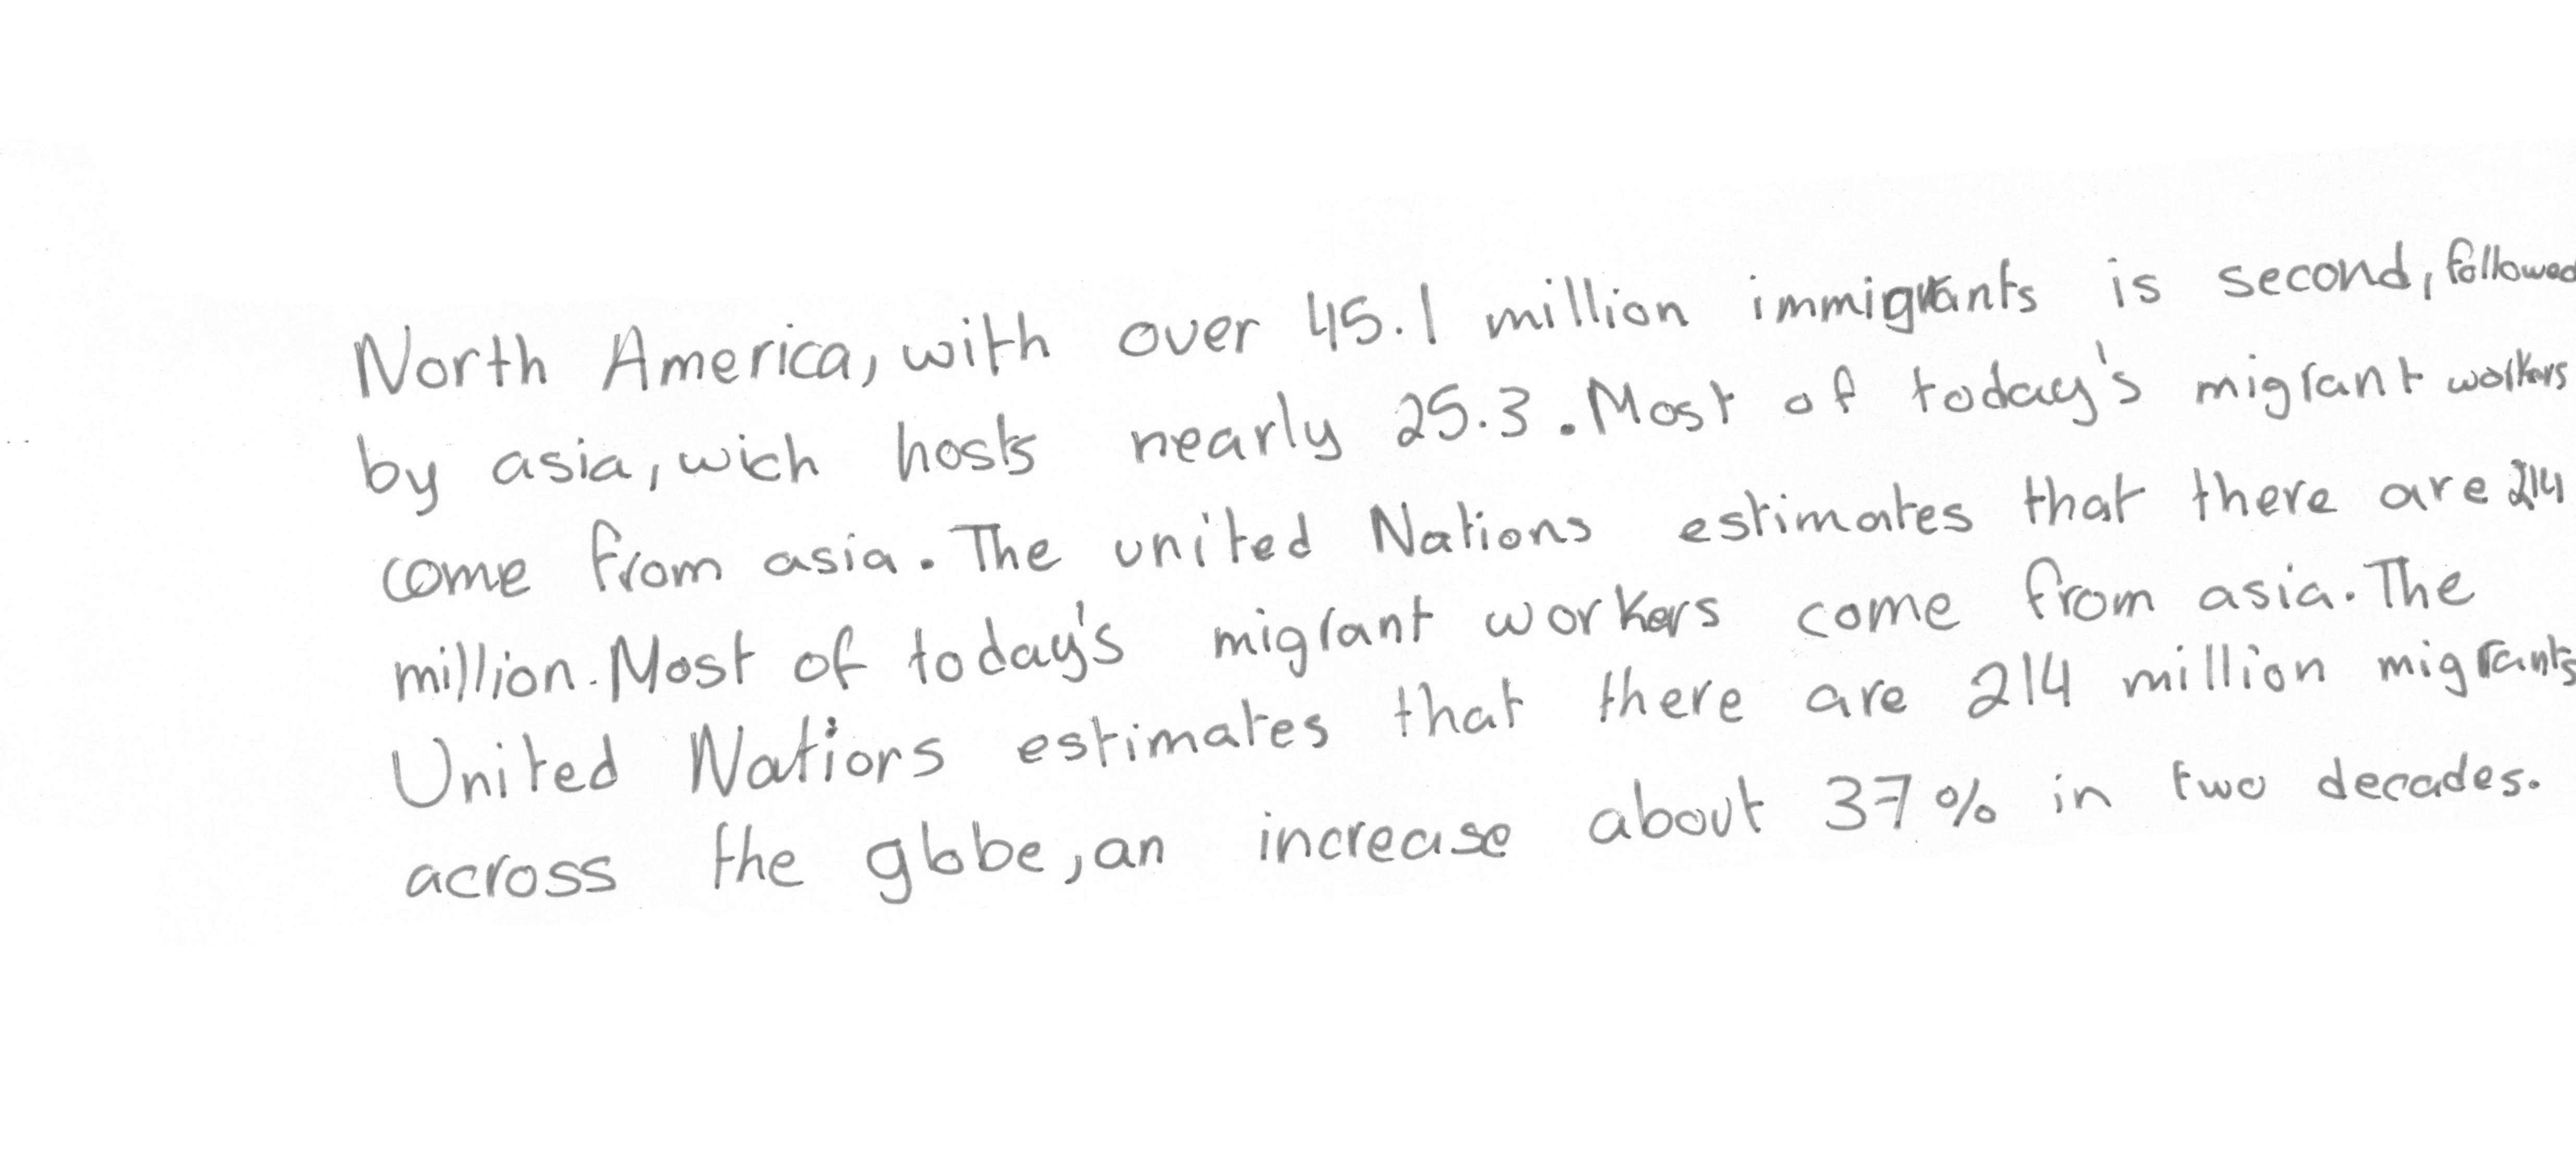 North America, with over 45.1 million immigrants is second, followed
by asia, wich hosts nearly 25.3. Most of today's migrant workers
come from asia. The united Nations estimates that there are 214
million. Most of today's migrant workers come from asia. The
United Nations estimates that there are 214 million migrants
across the globe, an increase about 37% in two decades.